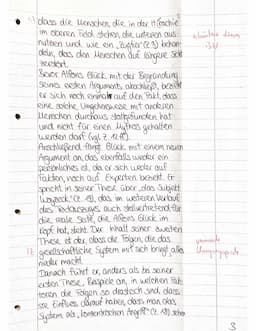 dass die Menschen, die in der Hierarchie
im oberen Feld stehen, die unteren aus-
nutzen und wie ein „Käfer" (Z. 9) behan-
deln, das den Menschen auf längere Sicht
zerstört.
Bevor Alfons Glück mit der Begründung
seines ersten Arguments abschließt, bezieht
er sich noch einmal auf den Fakt, dass
eine solche Umgehensweise mit anderen
Menschen durchaus stattgefunden hat
und nicht für einen Mythos gehalten
werden darf (vgl. Z. 12 ff).
Anschließend fängt Glück mit einem neuen
Argument an, das ebenfalls weder ein
persönliches ist, da er sich weder auf
Fakten, noch auf Experten bezieht. Er
spricht in seiner These über „das Subjekt
Woyzeck" (Z. 18), das im weiteren Verlauf
des Textauszugs auch stellvertretend für
die reale Seite, die Alfons Glück im
Kopf hat, steht. Der Inhalt seiner zweiten
These ist der, dass die Folgen, die das
gesellschaftliche System mit sich bringt, alles
nieder macht.
Danach führt er, anders als bei seiner
ersten These, Beispiele an, in welchen Fak-
toren die Folgen so drastisch sind, dass
sie Einfluss darauf haben, dass man das
System als „konzentrischen Angriff" (Z. 18) schon
3